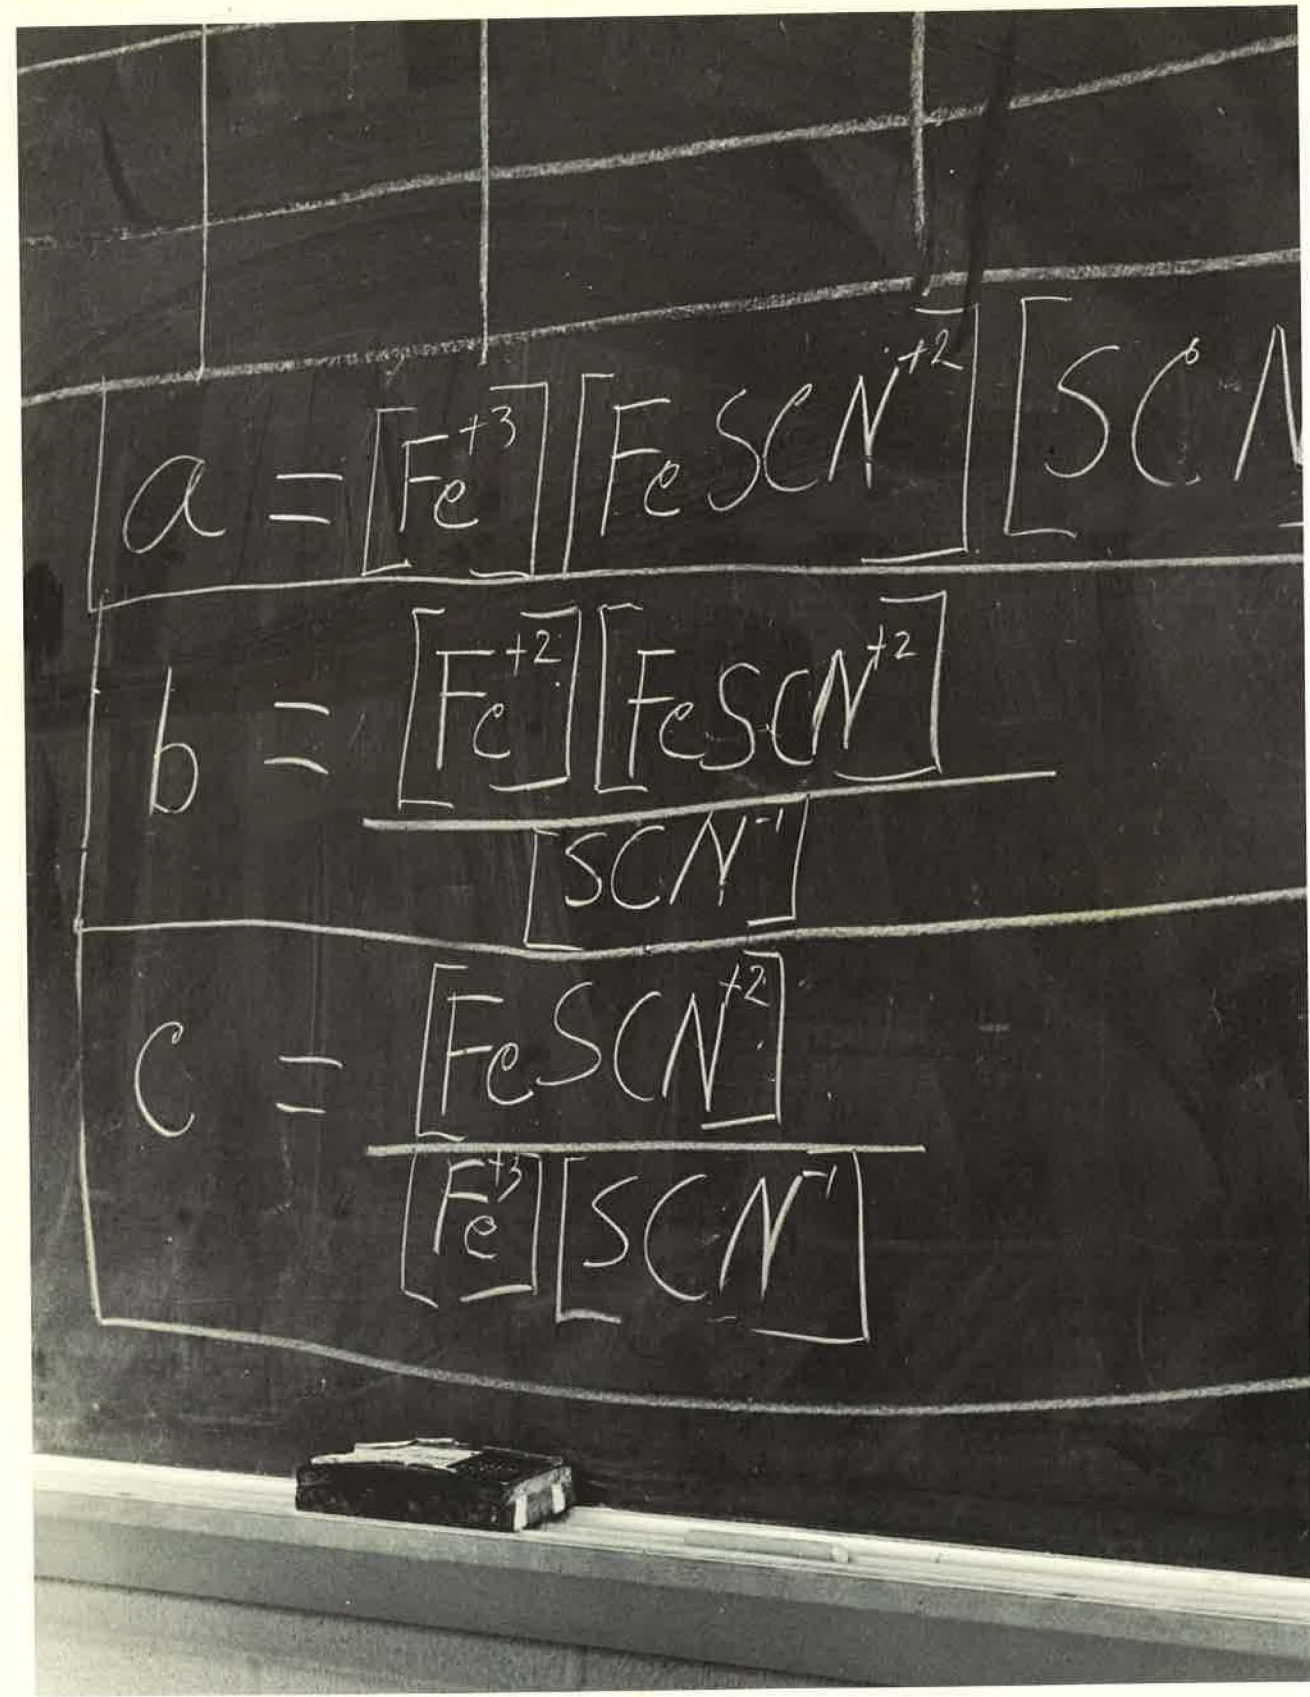 a = [Fe⁺³] [FeSCN⁺²] [SCN
b = [Fe⁺²] [FeSCN⁺²]
[SCN⁻¹]
c = [FeSCN⁺²]
[Fe⁺³] [SCN⁻¹]